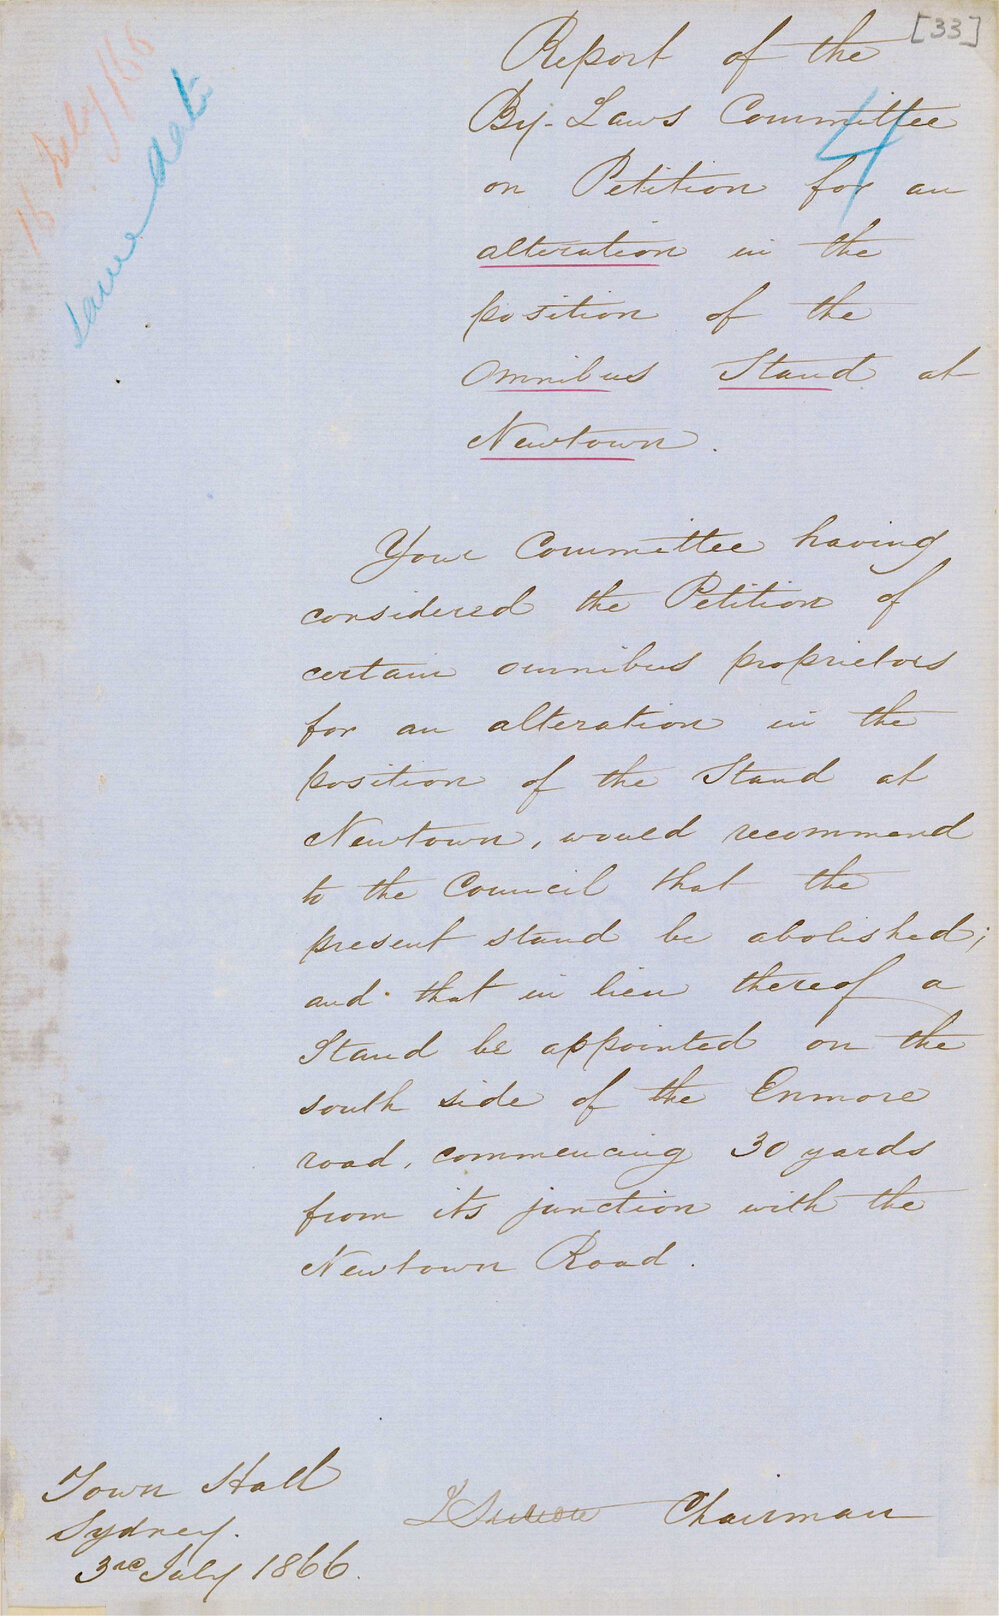 [33]
16 July/66
same date
4
Report of the
By-Laws Committee
on Petition for an
alteration in the
position of the
Omnibus Stand at
Newtown.
Your Committee having
considered the Petition of
certain omnibus proprietors
for an alteration in the
position of the Stand at
Newtown, would recommend
to the Council that the
present stand be abolished;
and that in lieu thereof a
Stand be appointed on the
south side of the Enmore
road, commencing 30 yards
from its junction with the
Newtown Road.
Chairman
Town Hall
Sydney.
3rd July 1866.